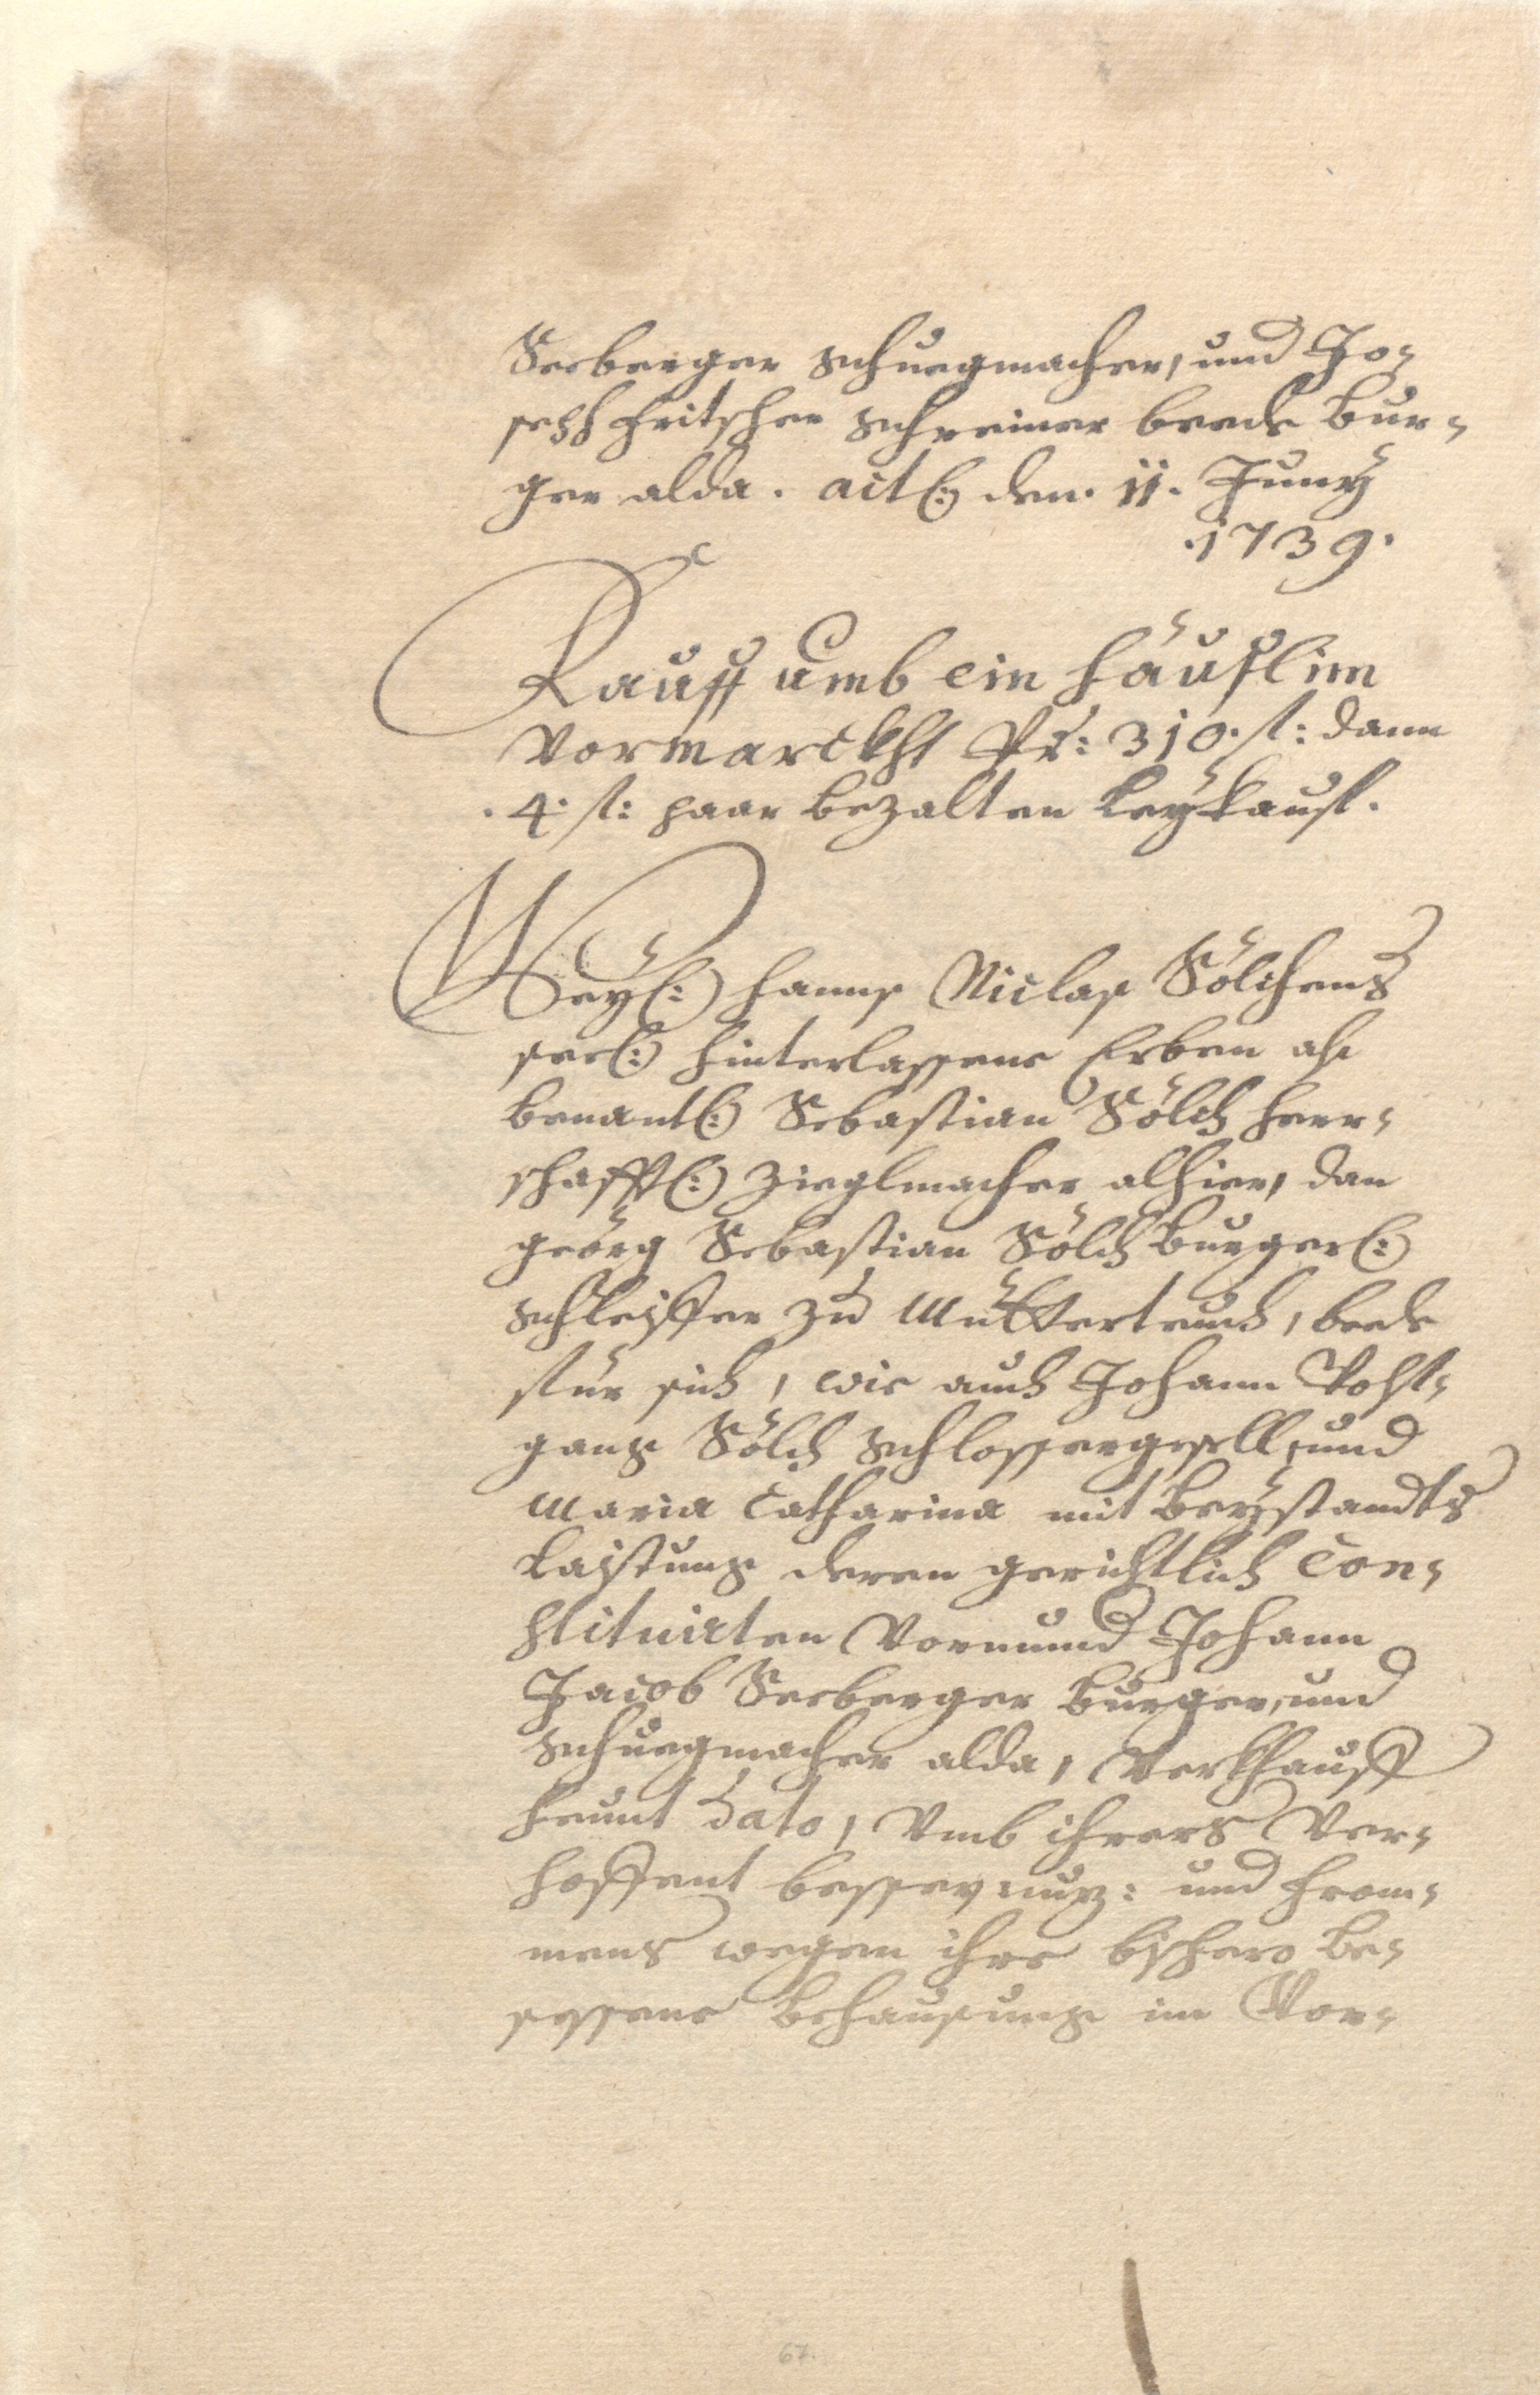 Seeberger Schuegmacher, und Jo-
seph Fritscher Schreiner beede Bur-
ger alda. act(:) den. 11. Juny
.1739.
Kauff umb ein Häusl im
Vormarckht Pr: 310. fl: dann
.4. fl: paar bezalten Leykauf.
Weyl(:) Hanns Niclas Sölchens
seel(:) hinterlassene Erben als
benantl(:) Sebastian Sölch herr-
schafftl(:) Zieglmacher alhier, dan
Georg Sebastian Sölch Burgerl(:)
Schleiffer zu Mütterteich, beede
für sich, wie auch Johann Wolf-
gang Sölch Schlossergesell, und
Maria Catharina mit Beystandts
Laistung deren gerichtlich Con-
stituirten Vormund Johann
Jacob Seeberger Burger, und
Schuegmacher alda, Verkhauff
heunt Dato, Umb ihrers Ver-
hoffent besser nuz: und From-
mens wegen ihre bishero be-
sessene Behausung im Vor-
67.